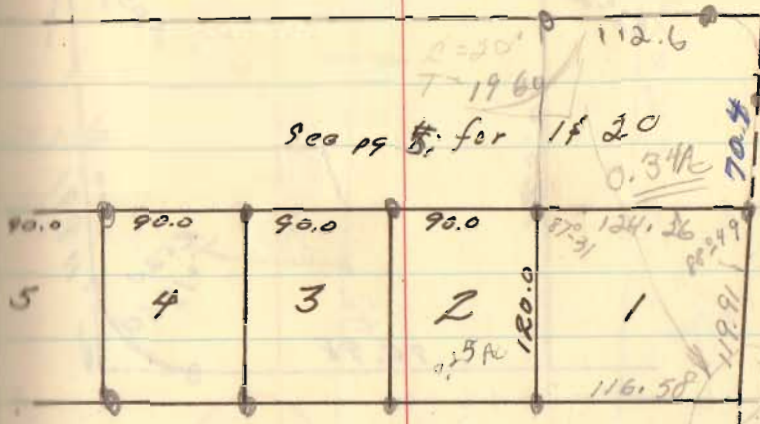 112.6
R = 20'
T = 19.64
See pg #5; for 1 & 20
0.34 Ac
70.4
90.0 90.0 90.0 90.0 87°-31 124.26 88°49
5 4 3 2 120.0 1 119.91
.25 Ac
116.58